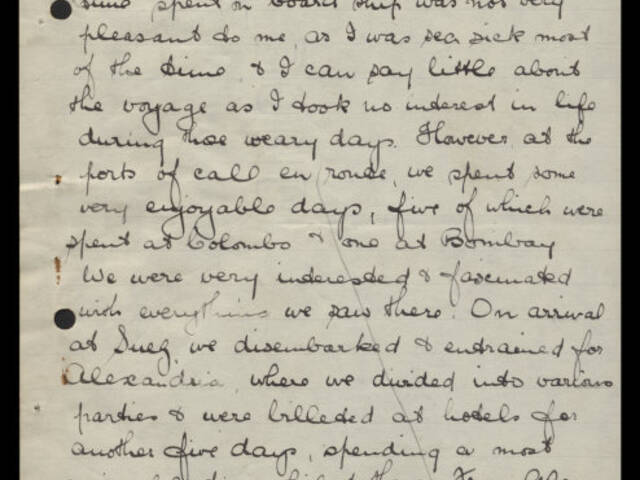 time spent on board ship was not very
pleasant to me, as I was sea sick most
of the time, & I can say little about
the voyage as I took no interest in life
during those weary days. However, at the
ports of call en route, we spent some
very enjoyable days, five of which were
spent at Colombo & one at Bombay
We were very interested & fascinated
with everything we saw there. On arrival
at Suez, we disembarked & entrained for
Alexandria, where we divided into various
parties & were billeted at hotels for
another five days, spending a most